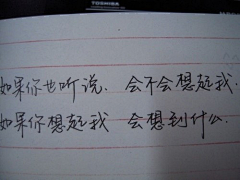 如果你也听说. 会不会想起我.
如果你想起我 会想到什么.